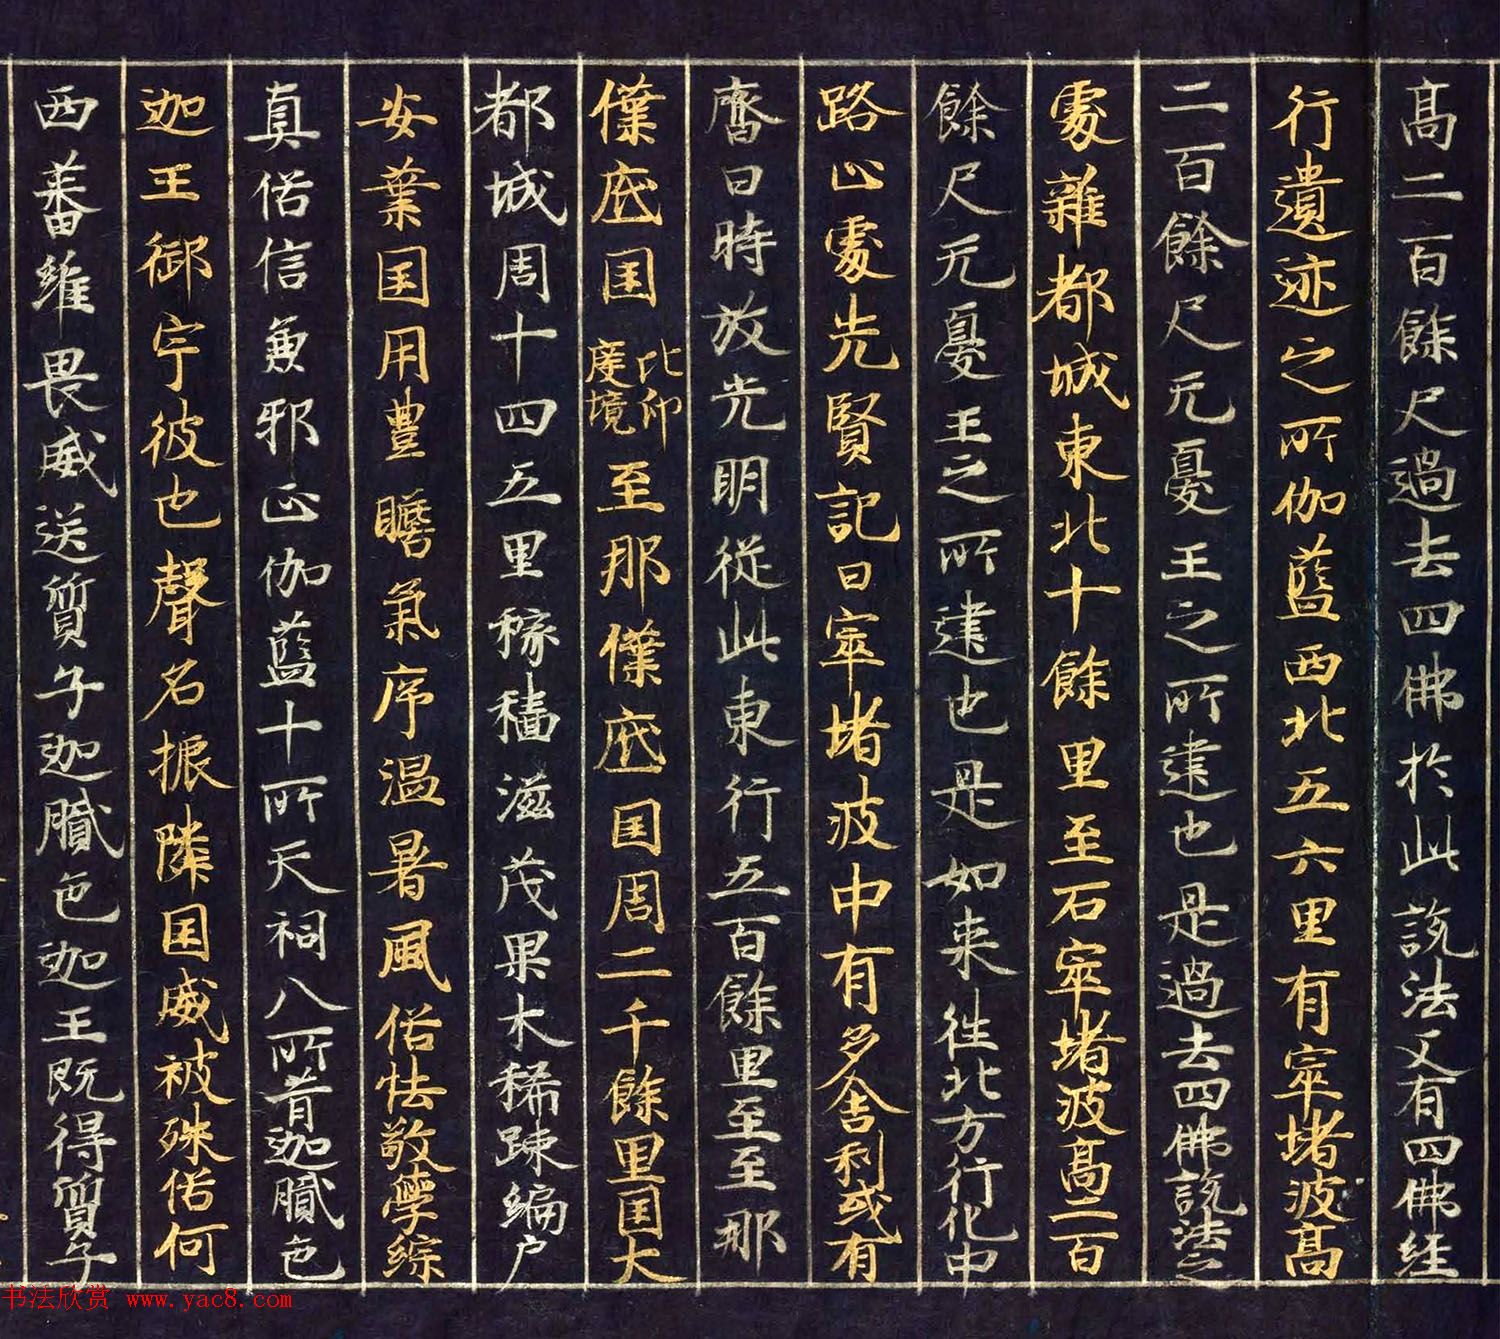 高二百餘尺過去四佛於此說法又有四佛經
行遺迹之所伽藍西北五六里有窣堵波高
二百餘尺无憂王之所建也是過去四佛說法之
處雜都城東北十餘里至石窣堵波高二百
餘尺无憂王之所建也是如来往北方行化中
路止處先賢記曰窣堵波中有多舍利或有
齋日時放光明從此東行五百餘里至至那
僕底国比印度境至那僕底国周二千餘里国大
都城周十四五里稼穡滋茂果木稀踈編户
安業国用豊贍氣序温暑風俗怯敬學綜
真俗信兼邪正伽藍十所天祠八所昔迦膩色
迦王御宇彼也聲名振隣国威被殊俗何
西蕃維畏威送質子迦膩色迦王既得質子
书法欣赏 www.yac8.com